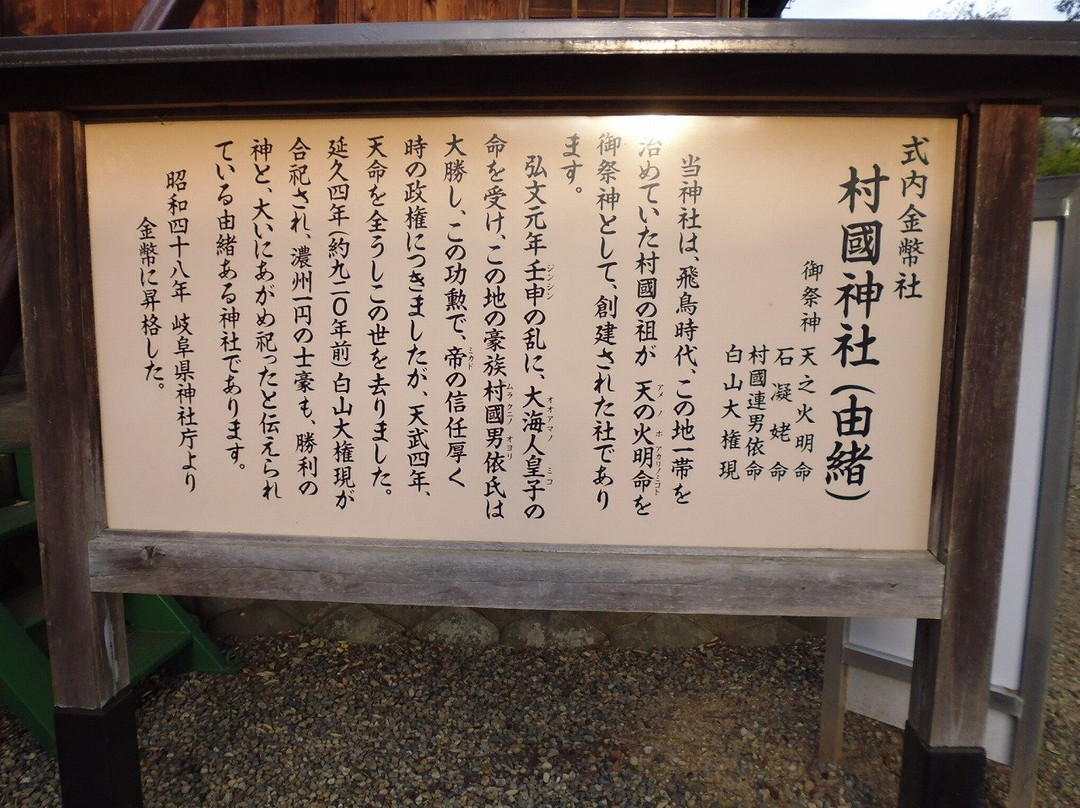 式内金幣社
村國神社(由緒)
御祭神 天之火明命
石凝姥命
村國連男依命
白山大権現
当神社は、飛鳥時代、この地一帯を
治めていた村國の祖が 天の火明命を
アメノ ホ アカリノミコト
御祭神として、創建された社であり
ます。
弘文元年壬申の乱に、大海人皇子の
ジンシン オオアマノ ミコ
命を受け、この地の豪族村國男依氏は
ムラクニノ オヨリ
大勝し、この功勲で、帝の信任厚く
ミカド
時の政権につきましたが、天武四年、
天命を全うしこの世を去りました。
延久四年(約九二〇年前)白山大権現が
合祀され、濃州一円の士豪も、勝利の
神と、大いにあがめ祀ったと伝えられ
ている由緒ある神社であります。
昭和四十八年 岐阜県神社庁より
金幣に昇格した。